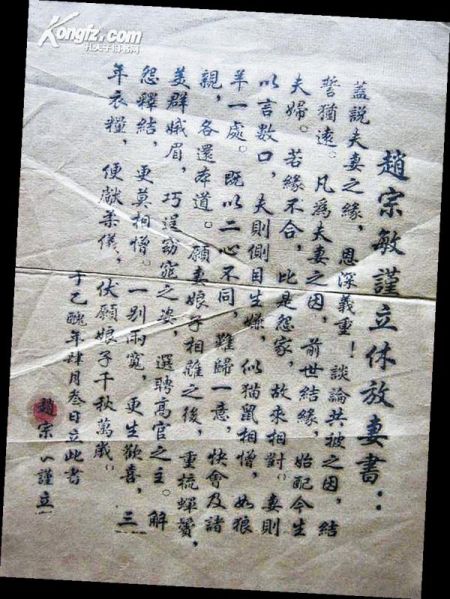 Kongfz.com
孔夫子旧书网
趙宗敏謹立休放妻書：
蓋說夫妻之緣，恩深義重！談論共被之因，結
誓猶遠。凡為夫妻之因，前世結緣，始配今生
夫婦。若緣不合，比是怨家，故來相對。妻則
以言數口，夫則側目生嫌，似猫鼠相憎，如狼
羊一處。既以二心不同，難歸一意，快會及諸
親，各還本道。願妻娘子相離之後，重梳蟬鬢，
美群娥眉，巧逞窈窕之姿，選聘高官之主。解
怨釋結，更莫相憎。一別兩寬，更生歡喜，三
年衣糧，便獻柔儀，伏願娘子千秋萬歲。
于乙醜年肆月叁日立此書
趙宗 謹立